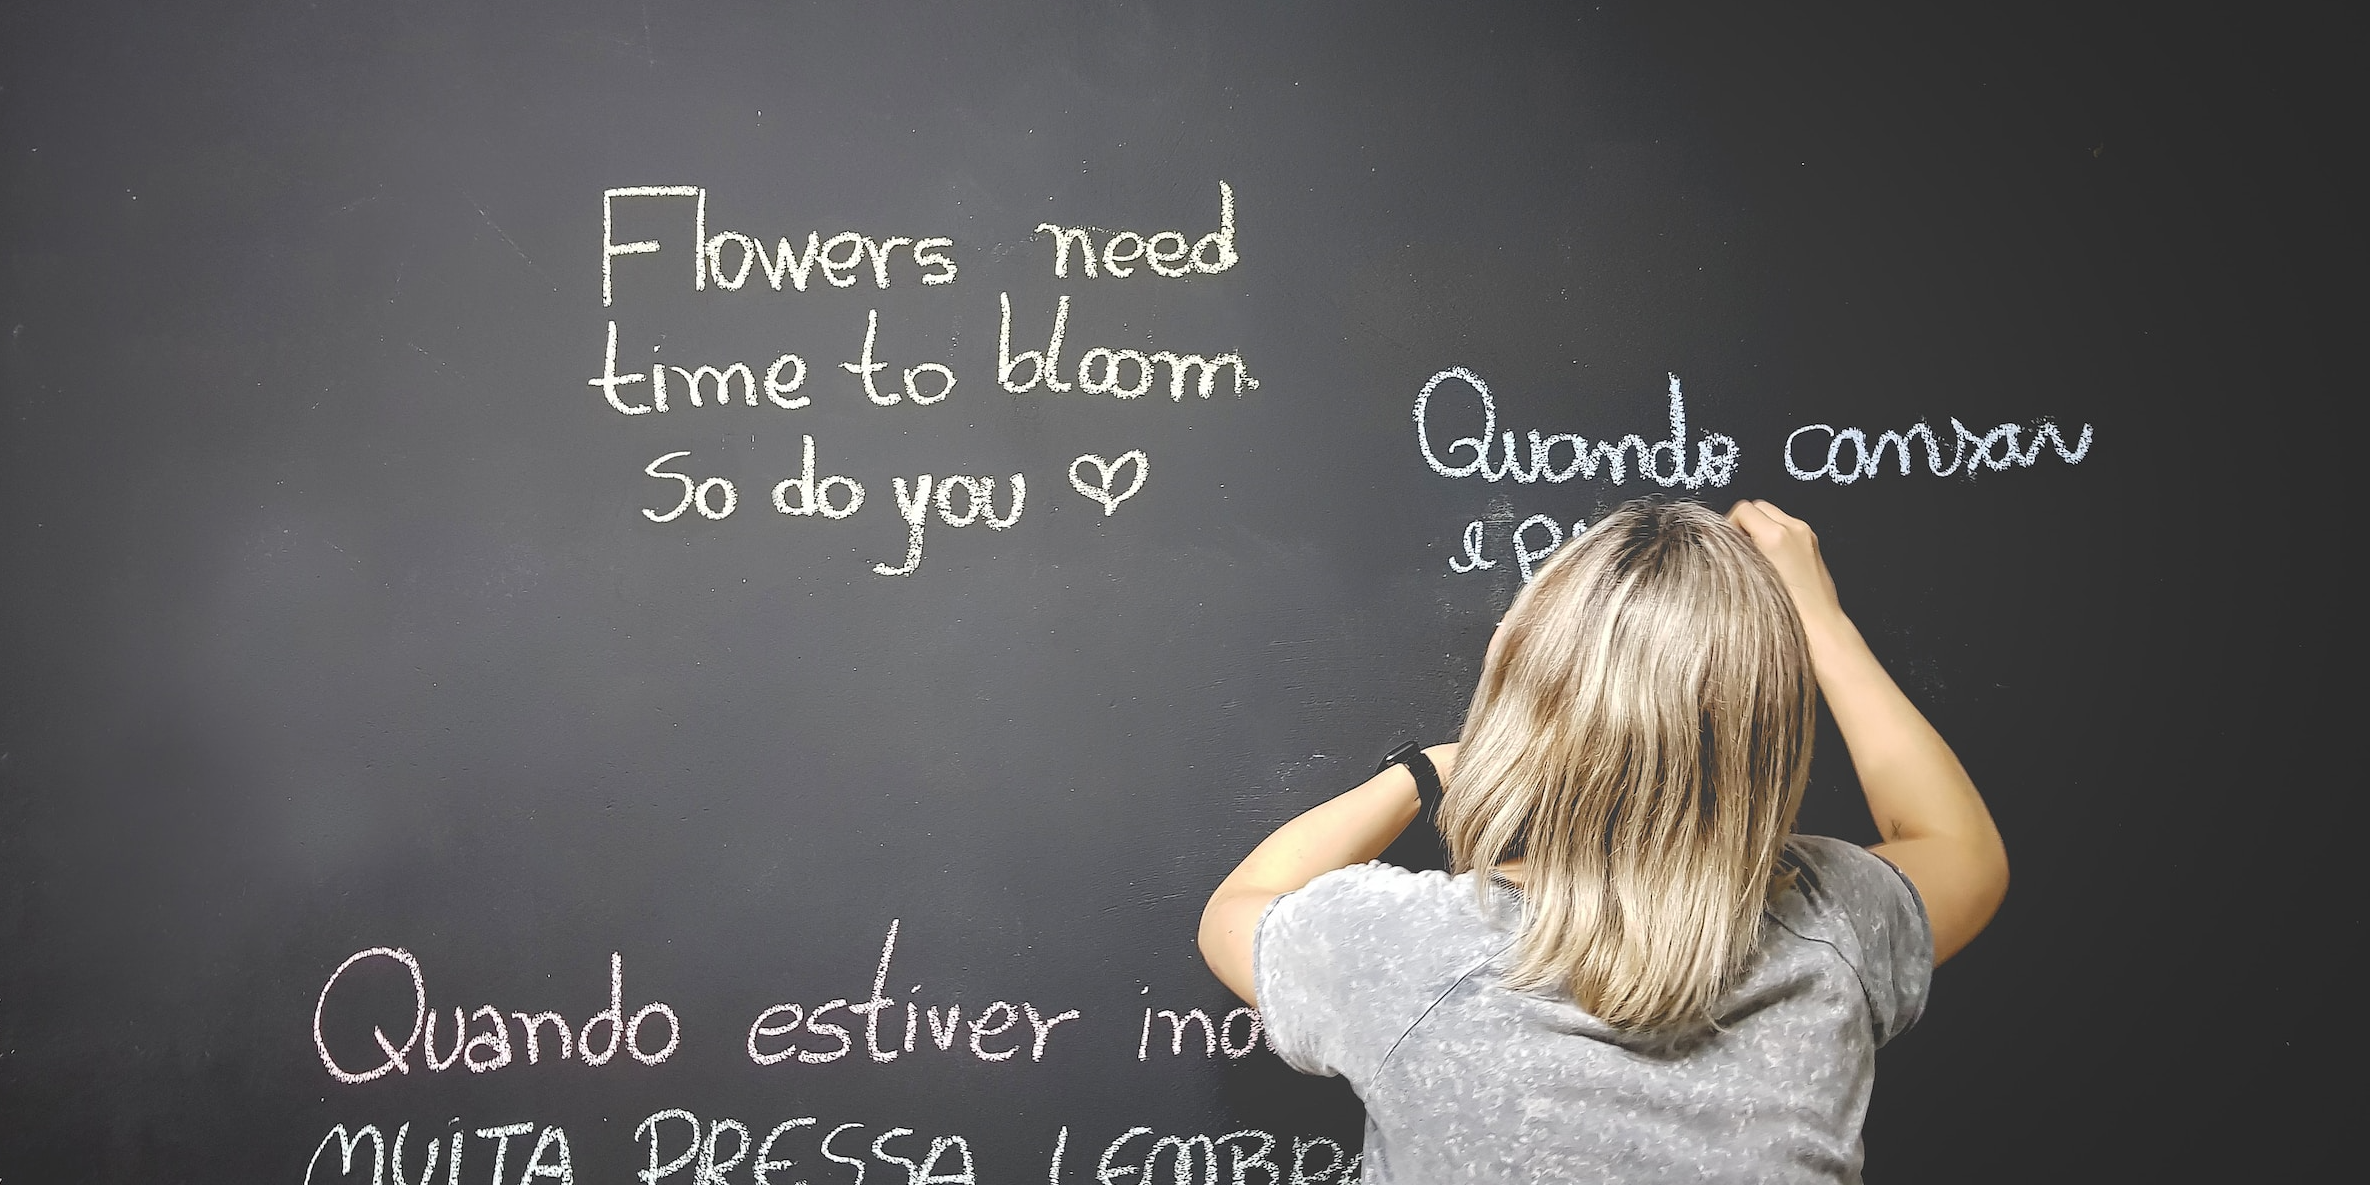 Flowers need
time to bloom.
So do you ♡
Quando cansar
e
Quando estiver
MUITA PRESSA